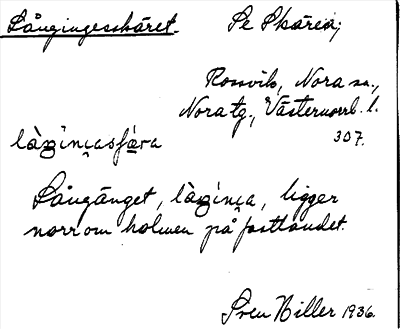 Långingesskäret. Se Skären;
Rossvik, Nora sn.,
Nora tg., Västernorrl. l.
307.
Långänget, ligger
norr om holmen på fastlandet.
Sven Hiller 1936.